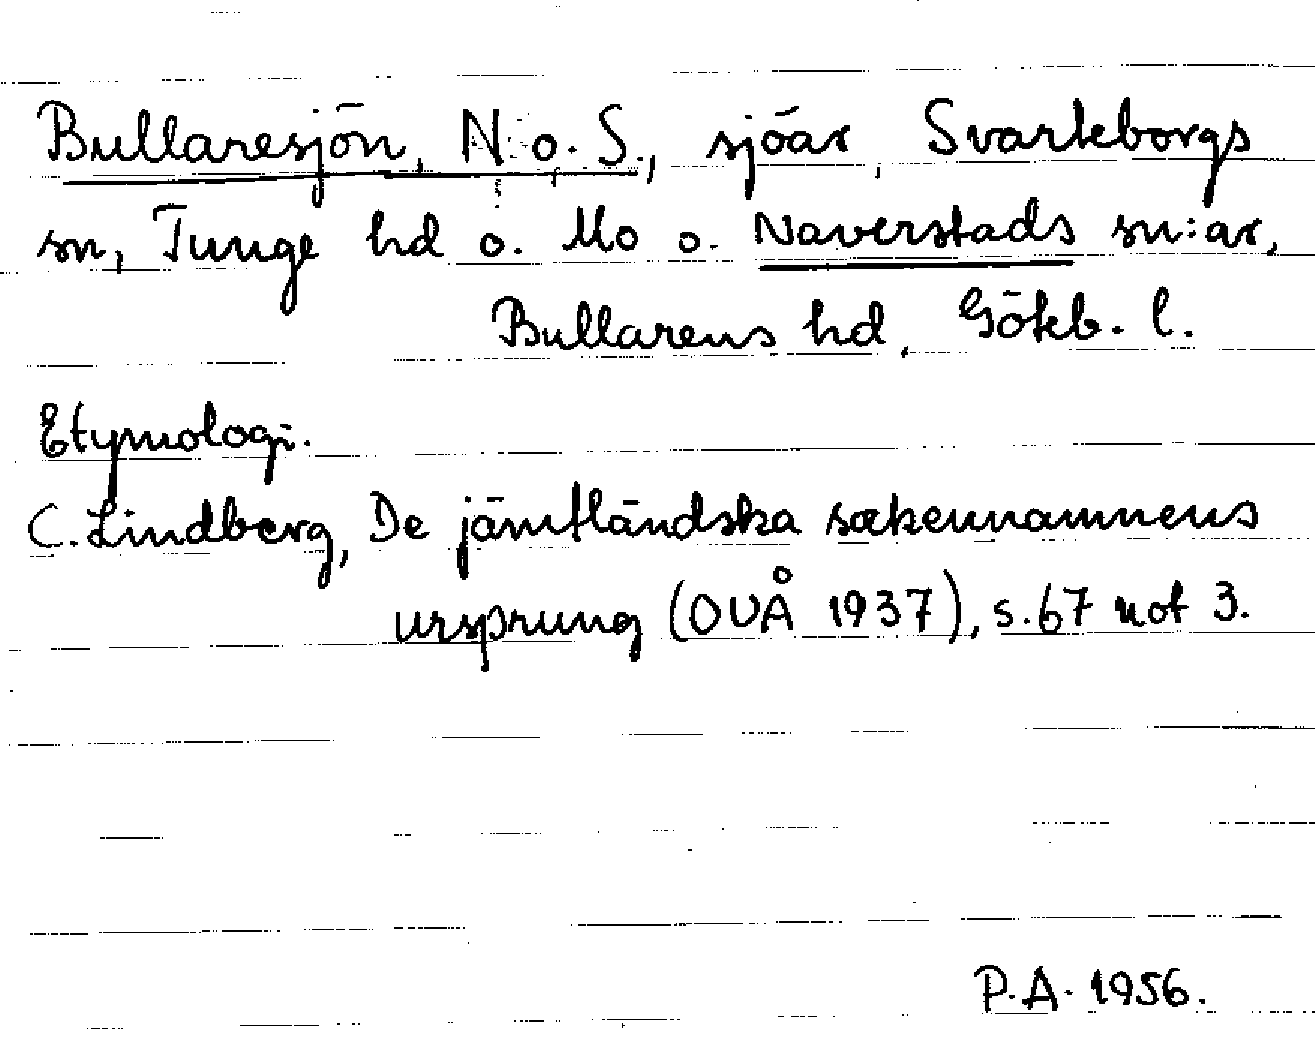 Bullaresjön, N. o. S., sjöar, Svarteborgs
sn, Tunge hd o. Mo o. Naverstads sn:ar,
Bullarens hd, Göteb. l.
Etymologi.
C. Lindberg, De jämtländska sockennamnens
ursprung (OUÅ 1937), s. 67 not 3.
P.A. 1956.